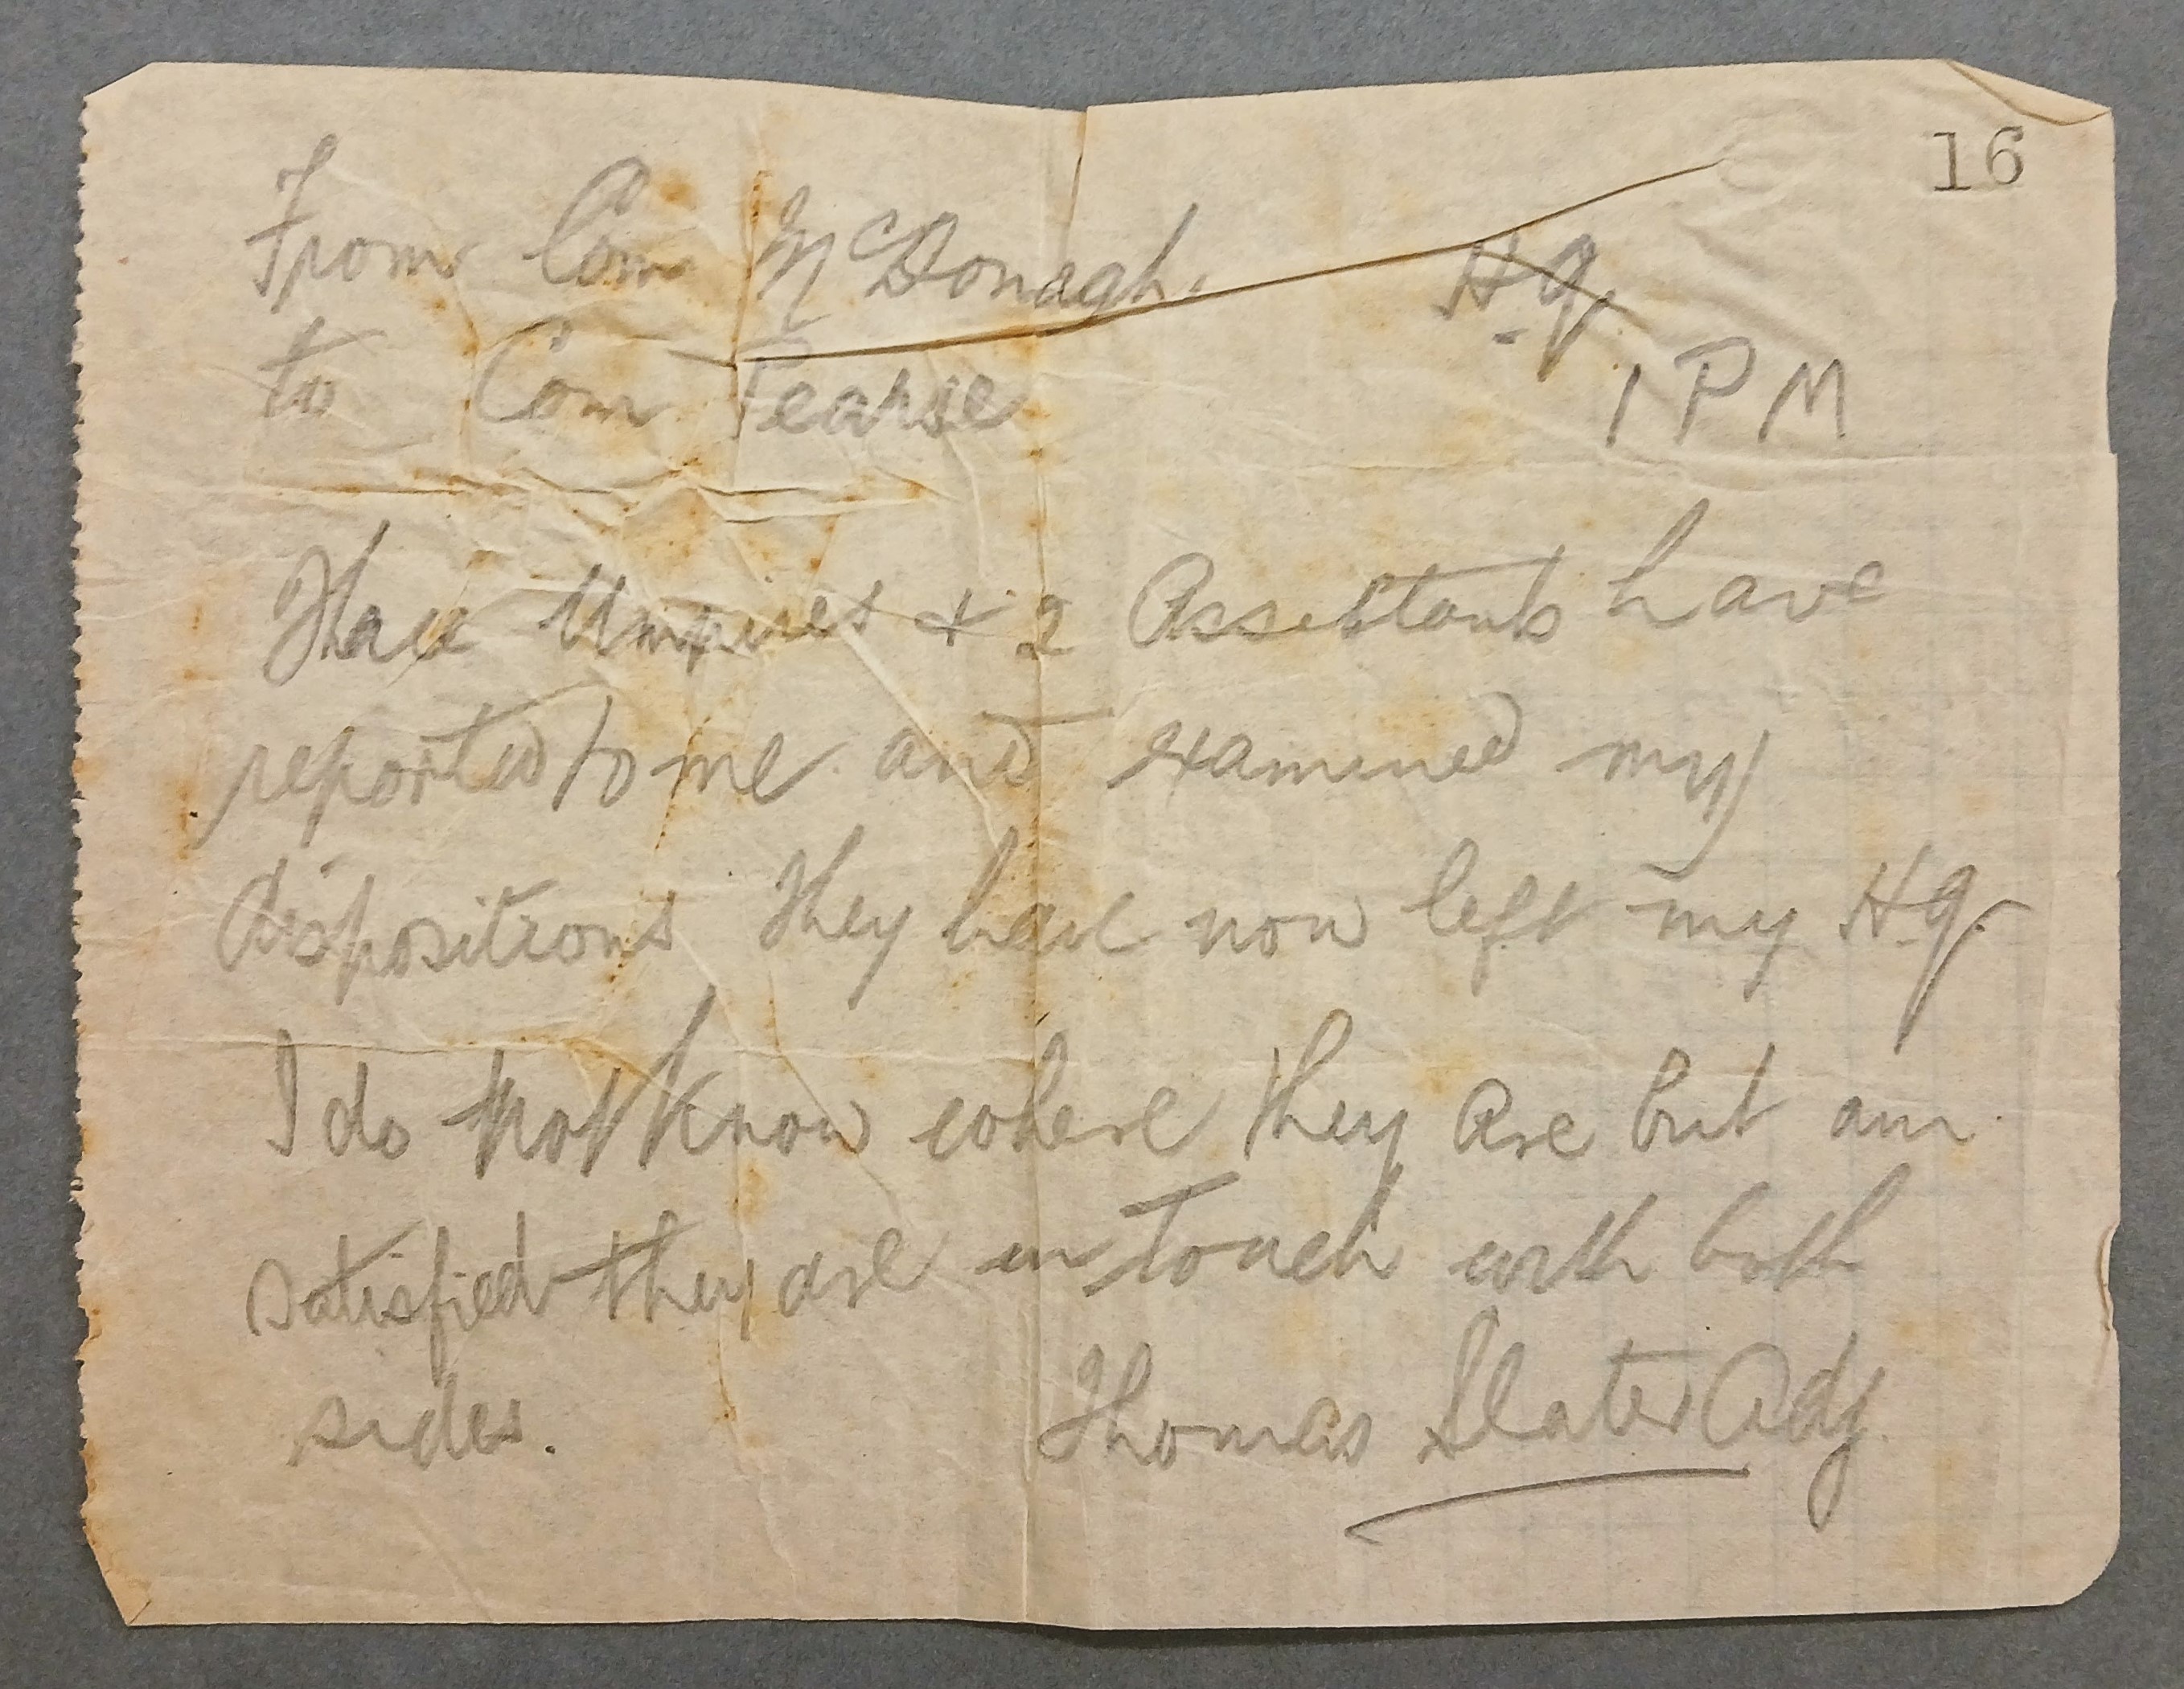 16
From Com McDonagh. H.Q.
to Com Pearse 1 PM
Umpires & 2 Assistants have
reported to me and examined my
dispositions They have now left my H.Q.
I do not know where they are but am
satisfied they are in touch with both
sides. Thomas Slater Adj.